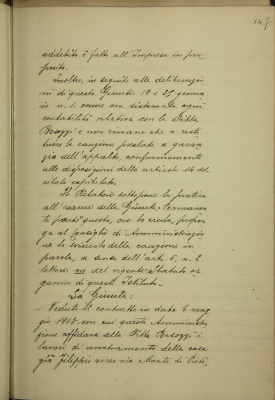 147
addebito è fatto all'Impresa in pro-
posito.
Inoltre, in seguito alle deliberazio-
ni di questa Giunta 19 e 25 genna
io u. s. venne sistemata ogni
contabilità relativa con la Ditta
Besozzi e non rimane che a resti
tuire la cauzione prestata a garan
zia dell'appalto, conformemente
alle disposizioni dello articolo 14 del
citato capitolato.
Il Relatore sottopone la pratica
all'esame della Giunta Permanen
te perchè questa, ove lo creda, propon
ga al Consiglio di Amministrazio
ne lo svincolo della cauzione in
parola, a sensi dell'art. 5, n. 2
lettera del vigente Statuto or
ganico di questo Istituto.
La Giunta:
Veduto il contratto in data 6 mag
gio 1908 con cui questa Amministra
zione affidava alla Ditta Besozzi i
lavori di riattamento della casa
già Filippini verso via Monte di Pietà,